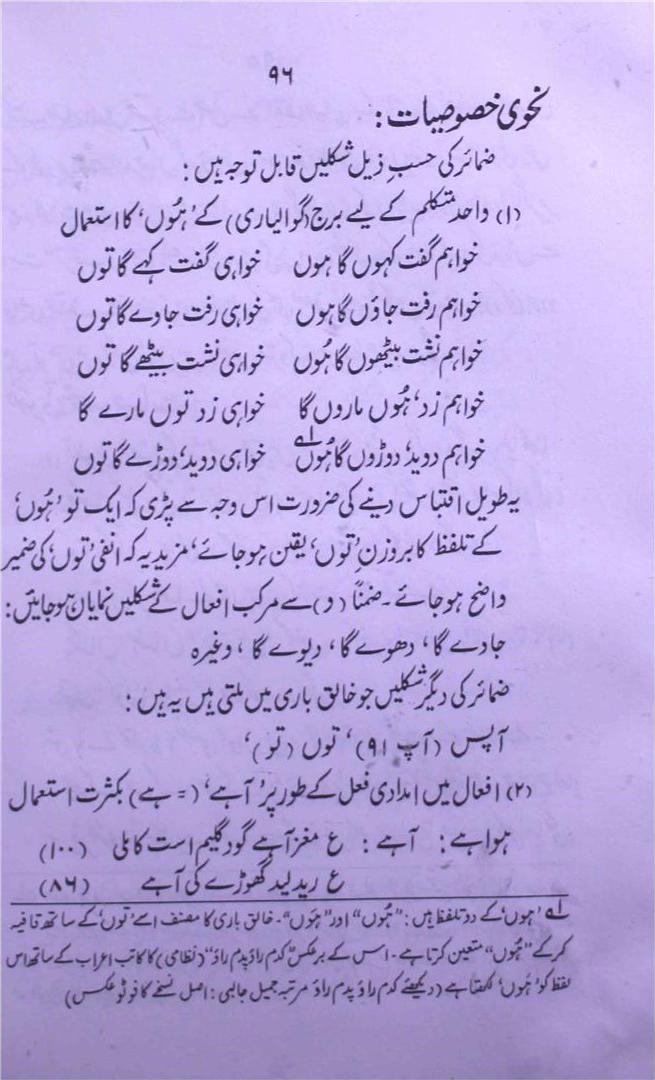 ۹۶
نحوی خصوصیات :
ضمائر کی حسبِ ذیل شکلیں قابل توجہ ہیں :
(۱) واحد متکلم کے لیے برج (گوالیاری) کے ’ہُوں‘ کا استعمال
خواہم گفت کہوں گا ہوں خواہی گفت کہے گا توں
خواہم رفت جاؤں گا ہوں خواہی رفت جاوے گا توں
خواہم نشت بیٹھوں گا ہُوں خواہی نشت بیٹھے گا توں
خواہم زد، ہُوں ماروں گا خواہی زد توں مارے گا
خواہم دوید، دوڑوں گا ہُوں ؎۱ خواہی دوید، دوڑے گا توں
یہ طویل اقتباس دینے کی ضرورت اس وجہ سے پڑی کہ ایک تو ’ہُوں‘
کے تلفظ کا بروزنِ ’توں‘ یقین ہوجائے، مزید یہ کہ انفی ’توں‘ کی ضمیر
واضح ہوجائے ۔ ضمناً (و) سے مرکب افعال کے شکلیں نمایاں ہوجائیں :
جاوے گا ، دھووے گا ، دیوے گا ، وغیرہ
ضمائر کی دیگر شکلیں جو خالق باری میں ملتی ہیں یہ ہیں :
آپس (آپ ۹۱)، توں (تو)،
(۲) افعال میں امدادی فعل کے طور پر ’آہے‘ (= ہے) بکثرت استعمال
ہوا ہے : آہے : ع مغز آہے گود گلیم است کاملی (۱۰۰)
ع رید لید گھوڑے کی آہے (۸۶)
؎۱ ’ہوں‘ کے دو تلفظ ہیں : ”ہُوں“ اور ”ہَوں“ ۔ خالق باری کا مصنف اسے ’توں‘ کے ساتھ قافیہ
کرکے ”ہُوں“ متعین کرتا ہے ۔ اس کے برعکس ”کدم راؤ پدم راؤ“ (نظامی) کا کاتب اعراب کے ساتھ اس
لفظ کو ’ہَوں‘ لکھتا ہے (دیکھئے کدم راؤ پدم راؤ مرتبہ جمیل جالبی : اصل نسخے کا فوٹو عکس)